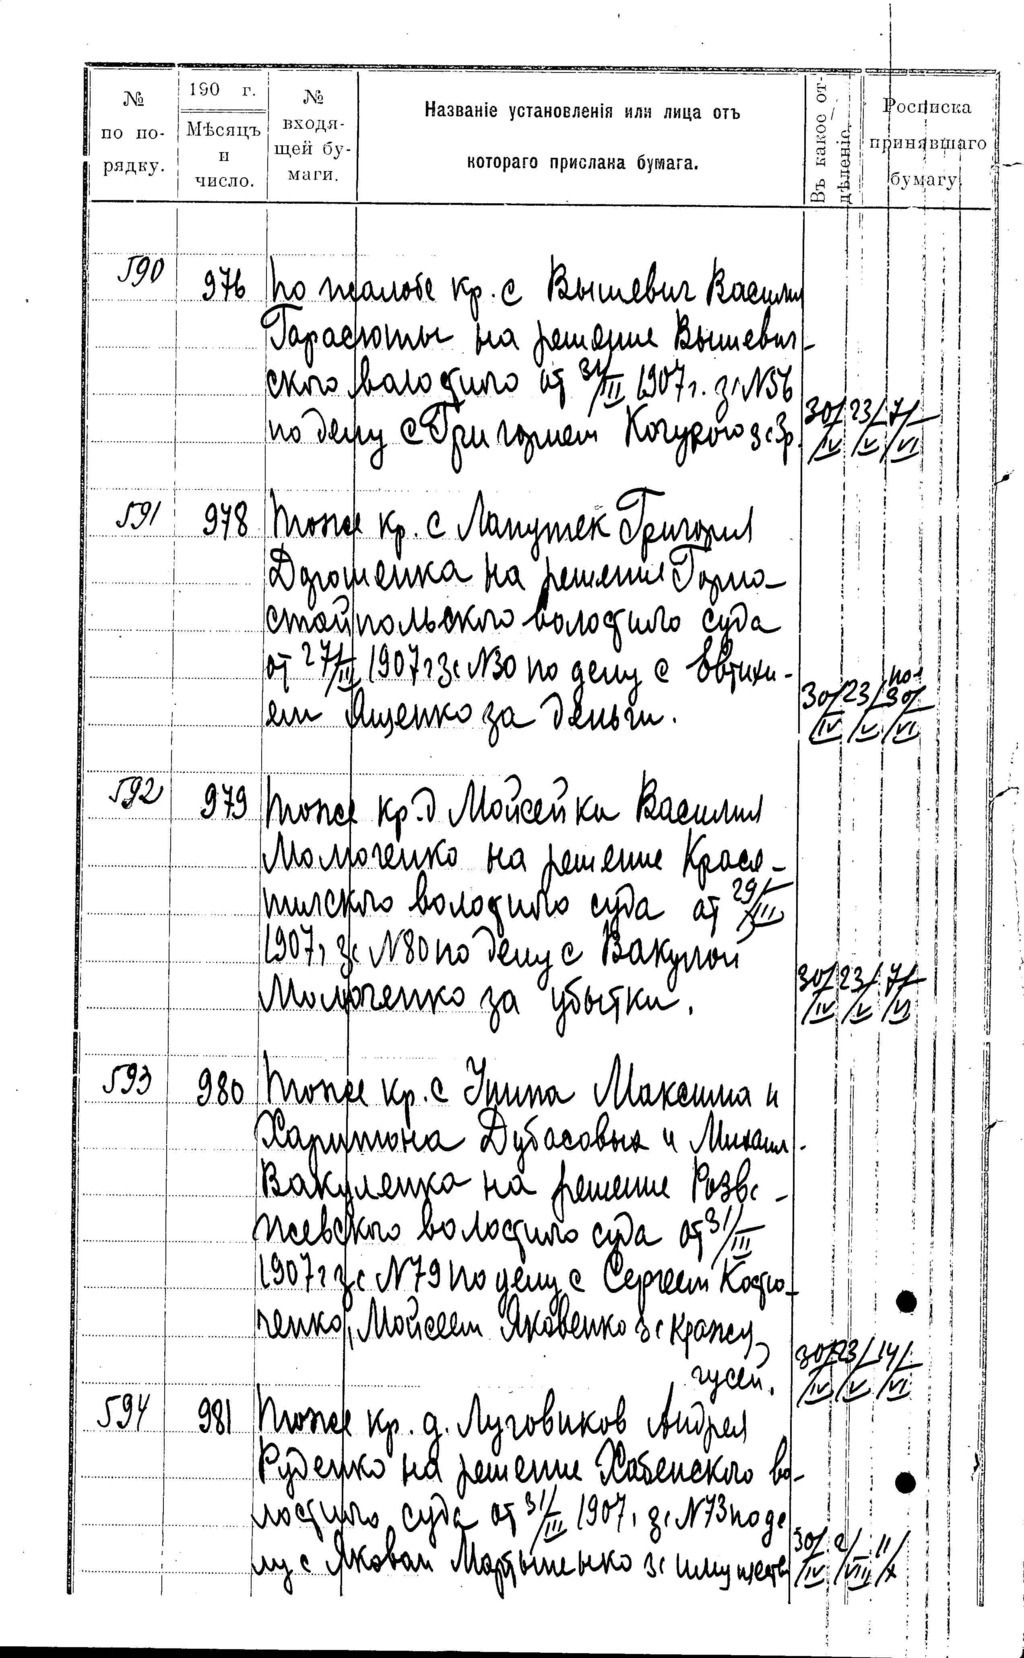 № по порядку.
190 г. Мѣсяцъ и число.
№ входящей бумаги.
Названіе установленія или лица отъ
котораго прислана бумага.
Въ какое отдѣленіе.
Росписка принявшаго бумагу.
590 976 по жалобе кр. с Вышевич Василия
Гарасюты на решение Вышевич-
ского волостного от 31/III 1907 г. за N56
по делу с Григорием Кочурою за 3р. 30/IV 23/V 7/VI
591 978 тоже кр. с Лапутек Григория
Дорошенка на решение Горно-
стайпольского волостного суда
от 27/III 1907 г за N30 по делу с Евтихи-
ем Ященко за деньги. 30/IV 23/V 30/VI
592 979 тоже кр. д Мойсейки Василия
Молюченко на решение Крася-
тилского волостного суда от 29/III
1907 г за N80 по делу с Вакулой
Молюченко за убытки. 30/IV 23/V 7/VI
593 980 тоже кр. с Максима и
Харитона Дубасовых и Михаил-
Вакуленка на решение Розва-
жевского волостного суда от 31/III
1907 г за N79 по делу с Сергеем Костю-
ченко, Мойсеем Яковенко за кражу
гусей. 30/IV 23/V 14/VI
594 981 тоже кр. д. Луговиков Андрея
Руденко на решение Хабенского во-
лостного суда от 31/III 1907 г за N73 по де
лу с Яковом Мартыненко за имущество 30/IV 2/VIII 11/X